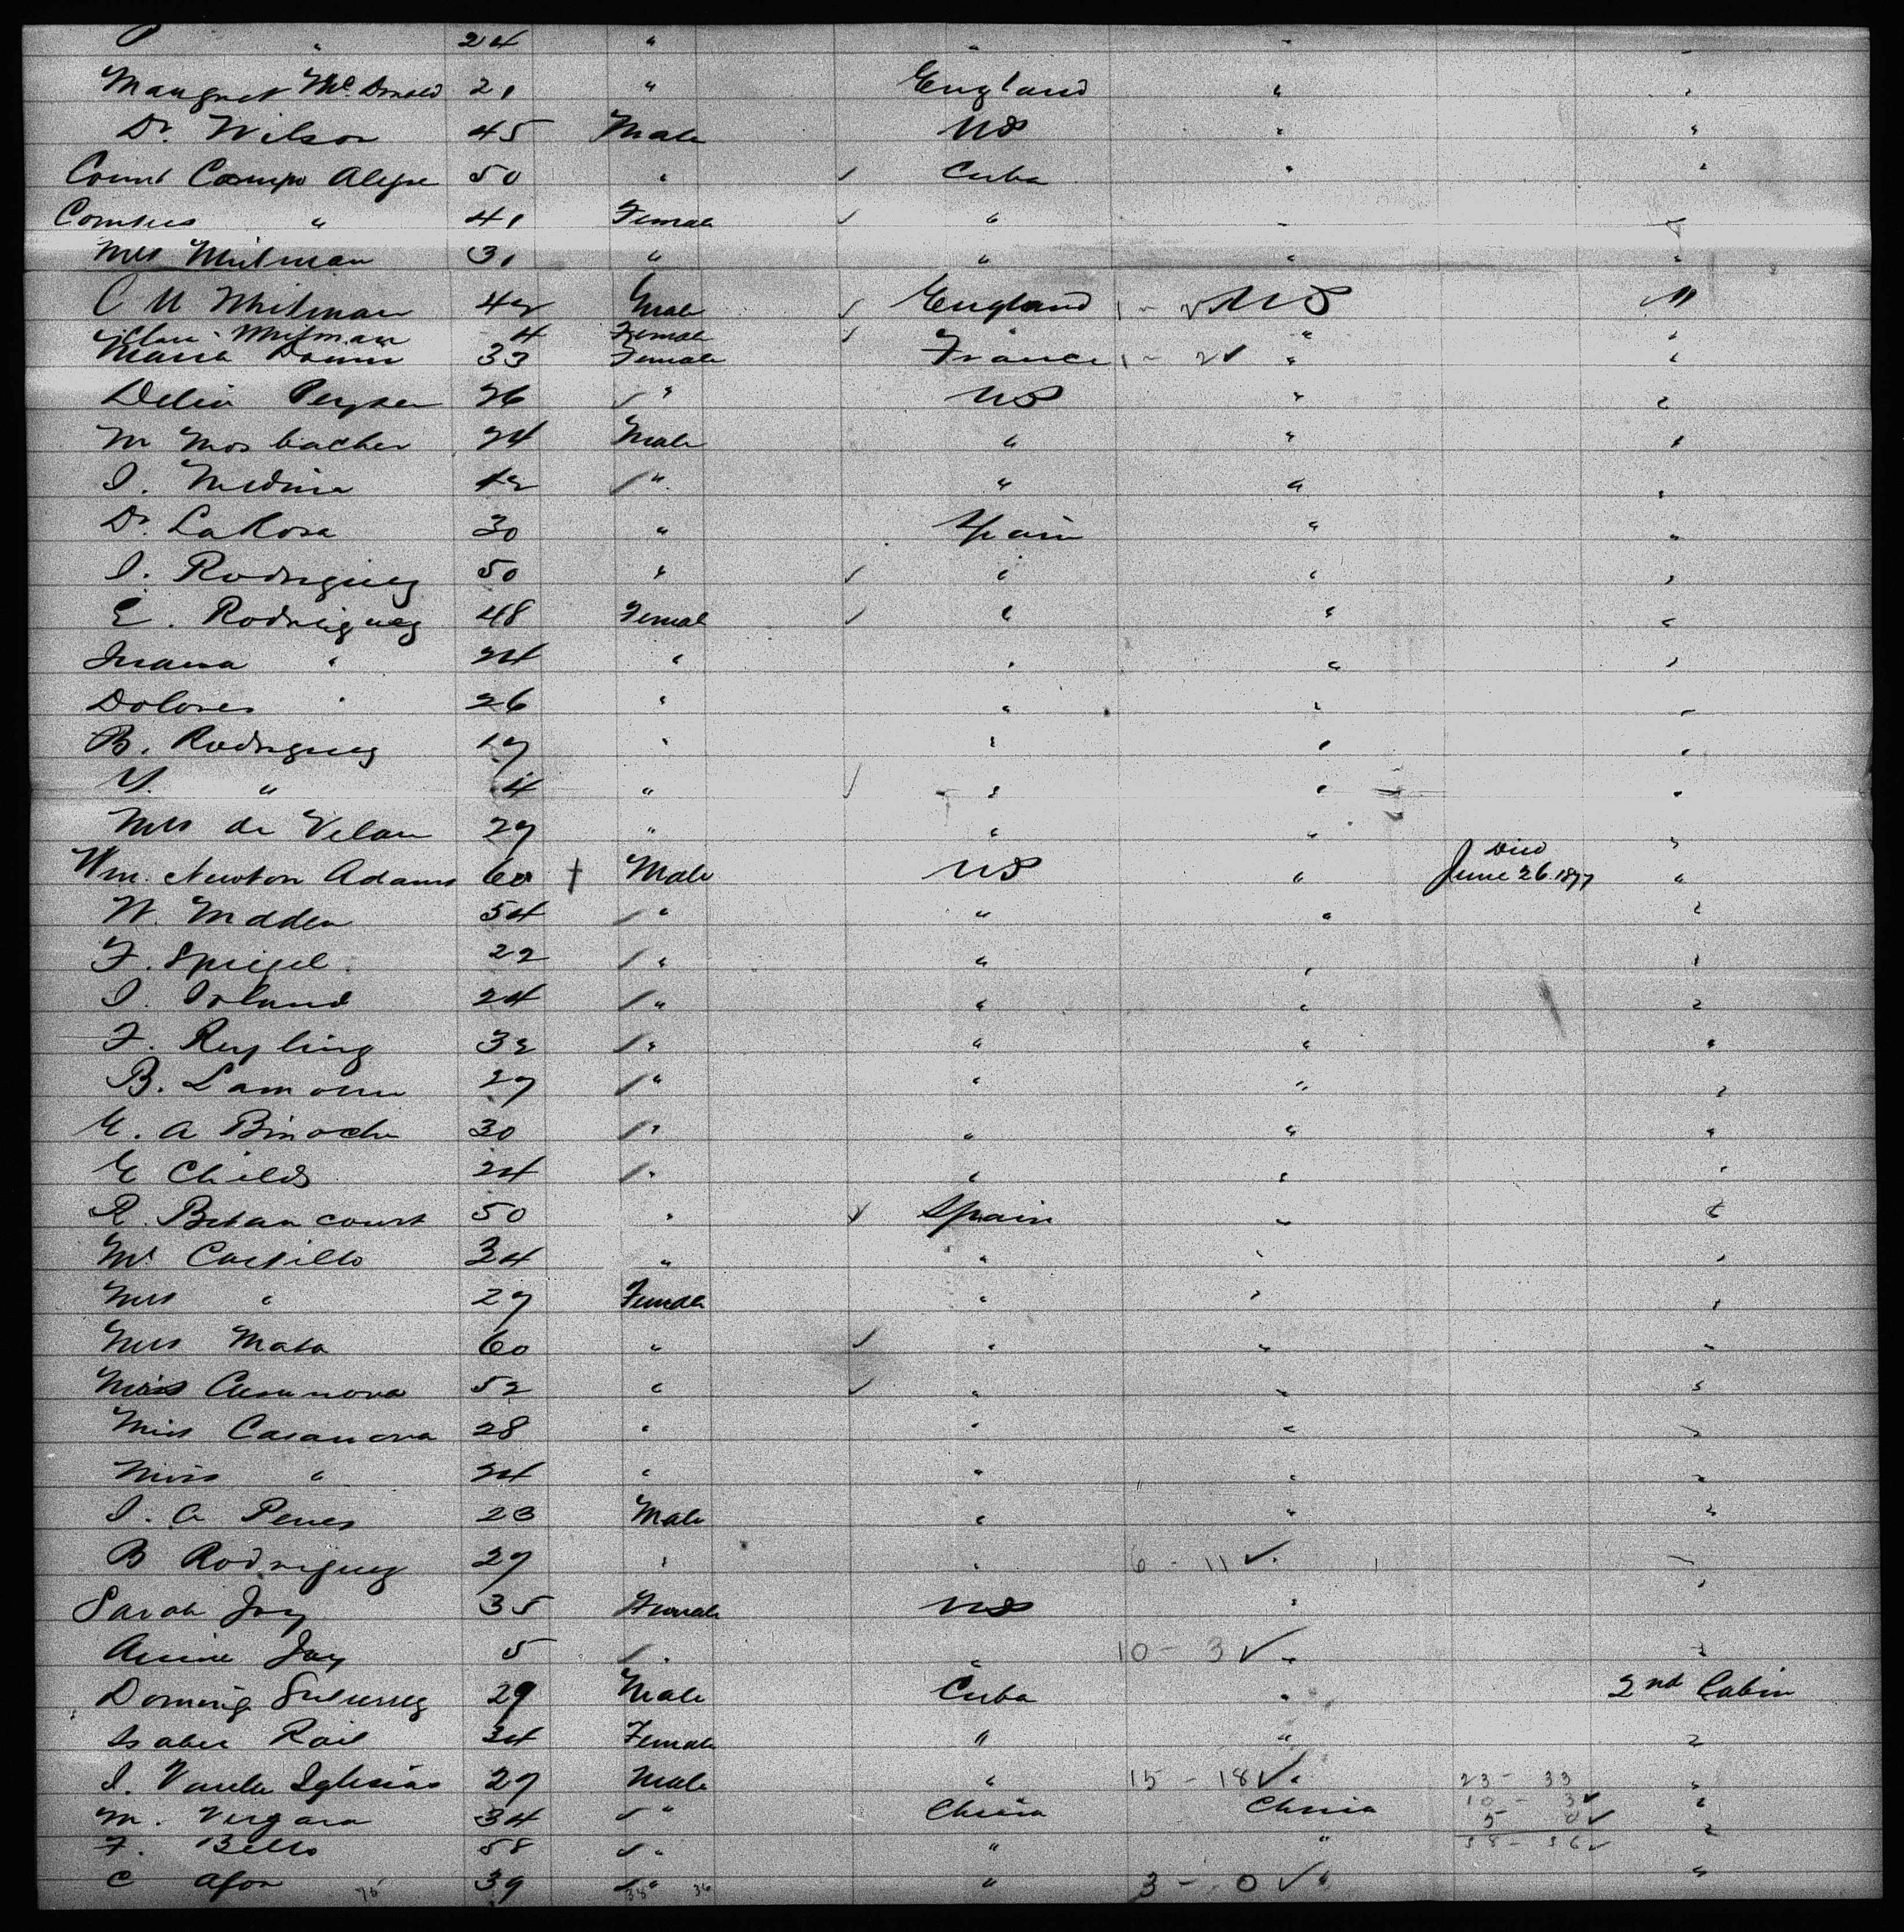 " 24 " " " "
Margret McDonald 21 " England " "
Dr. Wilson 45 Male US " "
Count Campo Alegre 50 " ✓ Cuba " "
Comtess " 41 Female ✓ " " "
Mrs Whitman 31 " " " "
C U Whitman 42 Male ✓ England 1 - 2 ✓ US "
Clara Whitman 4 Female ✓ " " "
Maria 33 Female France 1 - 2 ✓ " "
Delia 26 ✓ " US " "
M Mosbacher 24 Male " " "
I. Medina 12 / " " " "
Dr. LaRosa 30 " Spain " "
I. Rodriguez 50 " ✓ " " "
E. Rodriguez 48 Female ✓ " " "
Juana " 24 " " " "
Dolores " 26 " " " "
B. Rodriguez 17 " " " "
Y. " 14 " ✓ " " "
Mrs de Velau 27 " " " "
Wm. Newton Adams 60 † Male US " Died June 26. 1877 "
W. Madden 54 / " " " "
F. Spiegel 22 / " " " "
I. 24 / " " " "
F. Reyling 32 / " " " "
B. 27 / " " " "
E. A Binoche 30 / " " " "
E Childs 24 / " " " "
R. Betancourt 50 " ✓ Spain " "
Mr Castillo 34 " " " "
Mrs " 27 Female " " "
Mrs Mata 60 " ✓ " " "
Miss Casanova 52 " ✓ " " "
Miss Casanova 28 " " " "
Miss " 24 " " " "
I. A Peres 23 Male " " "
B Rodriguez 27 " " 6 - 11 ✓ " "
Sarah Joy 35 Female US " "
Annie Joy 5 / " " 10 - 3 ✓ " "
Doming 29 Male Cuba " 2nd Cabin
Isabel 34 Female " " "
I. Varela Iglesias 27 Male " 15 - 18 ✓ " 23 - 33 "
M. Vergara 34 ✓ " China China 10 - 3 ✓ "
F. Bello 58 ✓ " " " 5 - 0 ✓ "
38 - 36 ✓
C Afon 39 ✓ " " 3 - 0 ✓ " "
75 38 36